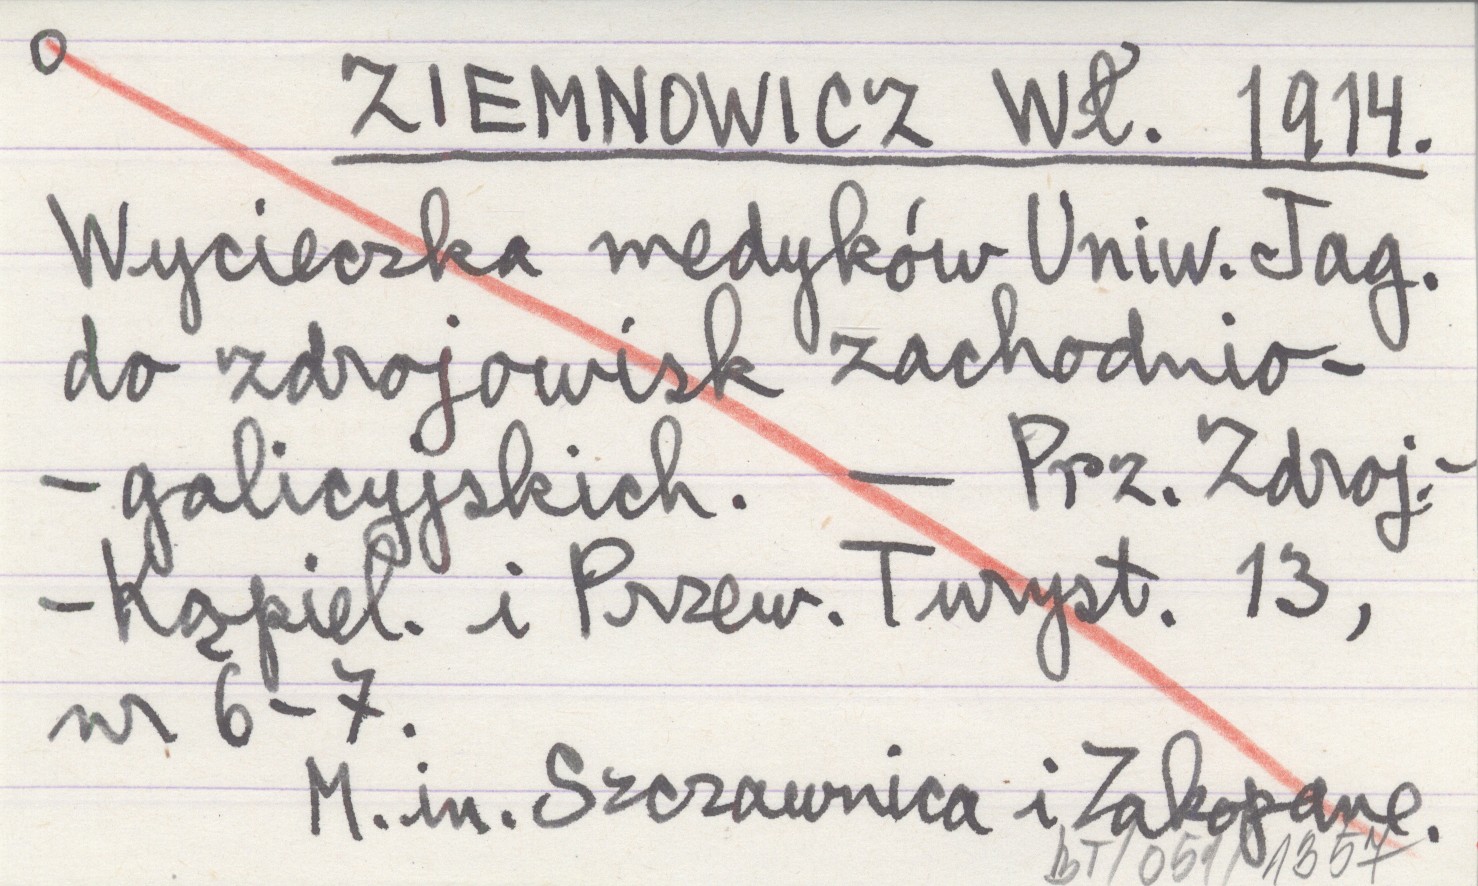 O
ZIEMNOWICZ Wł. 1914.
Wycieczka medyków Uniw. Jag.
do zdrojowisk zachodnio-
-galicyjskich. — Prz. Zdroj.-
-Kąpiel. i Przew. Turyst. 13,
nr 6-7.
M. in. Szczawnica i Zakopane.
BT/051/1357